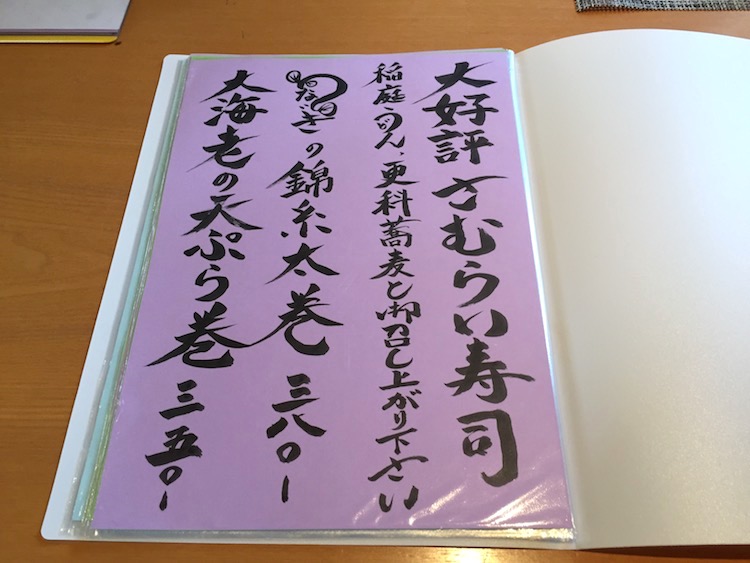 大好評 さむらい寿司
稲庭うどん、更科蕎麦と御召し上がり下さい
うなぎの錦糸太巻 三八〇-
大海老の天ぷら巻 三五〇-